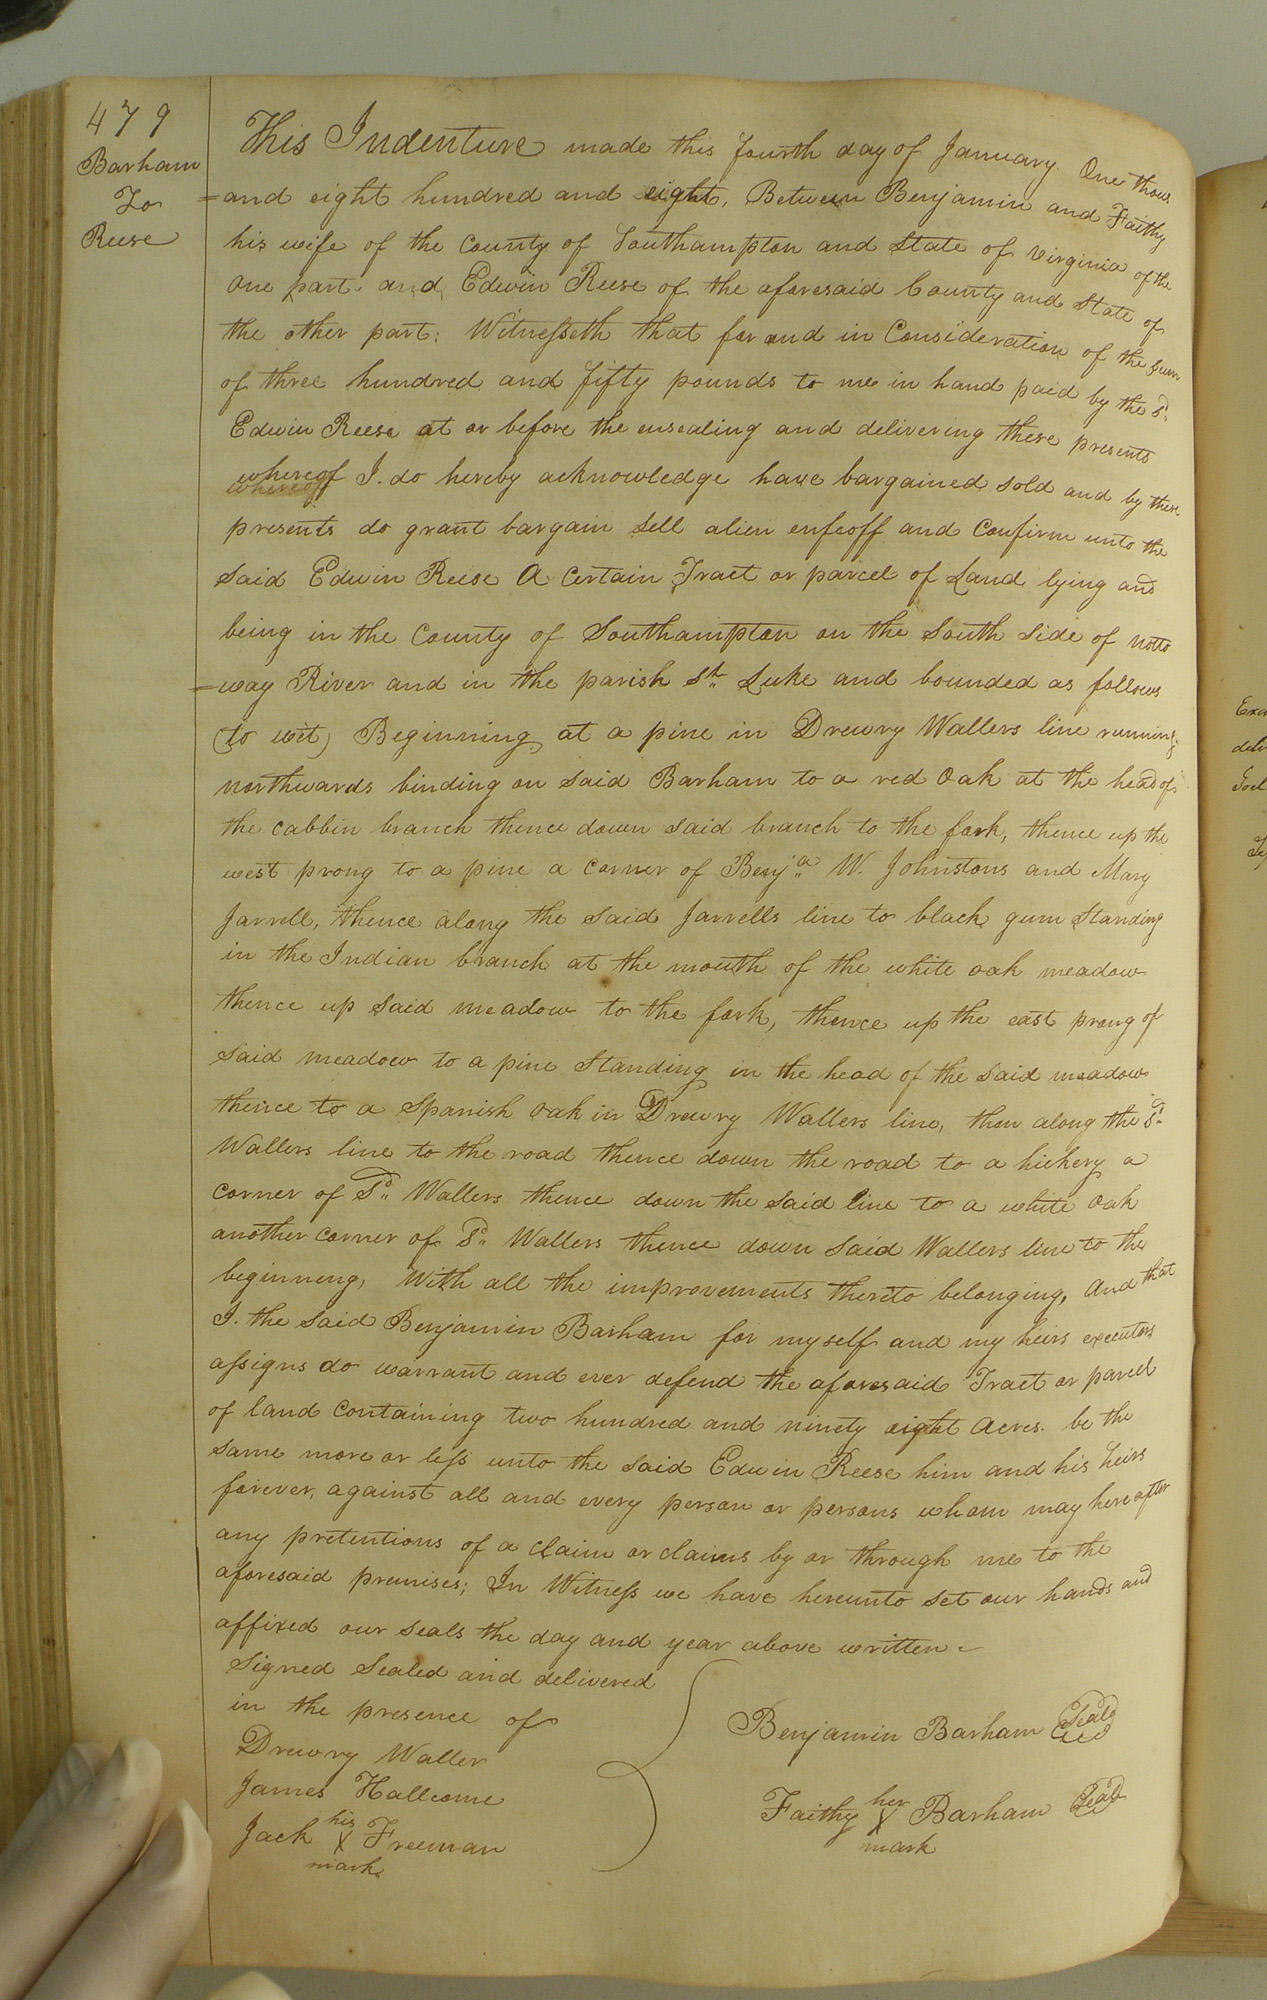 479
Barham
To
Reese
This Indenture made this fourth day of January. One thous
=and eight hundred and eight, Between Benjamin and Faithy
his wife of the County of Southampton and State of Virginia of the
One part. and Edwin Reese of the aforesaid County and State of
the other part: Witnesseth that for and in Consideration of the Sum
of three hundred and fifty pounds to me in hand paid by the sd.
Edwin Reese at or before the ensealing and delivering these presents
whereof I. do hereby acknowledge have bargained sold and by these
whereof
presents do grant bargain sell alien enfeoff and Confirm unto the
Said Edwin Reese A Certain Tract or parcel of Land lying and
being in the County of Southampton on the South Side of Notto
=way River and in the parish St. Luke and bounded as follows
(to wit) Beginning at a pine in Drewry Wallers line running
northwards binding on Said Barham to a red Oak at the head of
the cabbin branch thence down said branch to the fork, thence up the
west prong to a pine a corner of Benja. W. Johnstons and Mary
Jarrell, thence along the Said Jarrells line to black gum Standing
in the Indian branch at the mouth of the white oak meadow
thence up said meadow to the fork, thence up the east prong of
Said meadow to a pine Standing in the head of the said meadow
thence to a Spanish oak in Drewry Wallers line, then along the Sd.
Wallers line to the road thence down the road to a hickery a
corner of Sd. Wallers thence down the said line to a white oak
another corner of Sd. Wallers thence down said Wallers line to the
beginning, With all the improvements thereto belonging, And that
I. the Said Benjamin Barham for myself and my heirs executors
assigns do warrant and ever defend the aforesaid Tract or parcel
of land Containing two hundred and ninety eight Acres. be the
same more or less unto the said Edwin Reese him and his heirs
forever, against all and every person or persons whom may hereafter
any pretentions of a claim or claims by or through me to the
aforesaid premises; In Witness we have hereunto set our hands and
affixed our seals the day and year above written
Signed Sealed and delivered
in the presence of
Drewry Waller
James Hallcome
Jack his X mark Freeman
Benjamin Barham Seal
Faithy her X mark Barham Seal